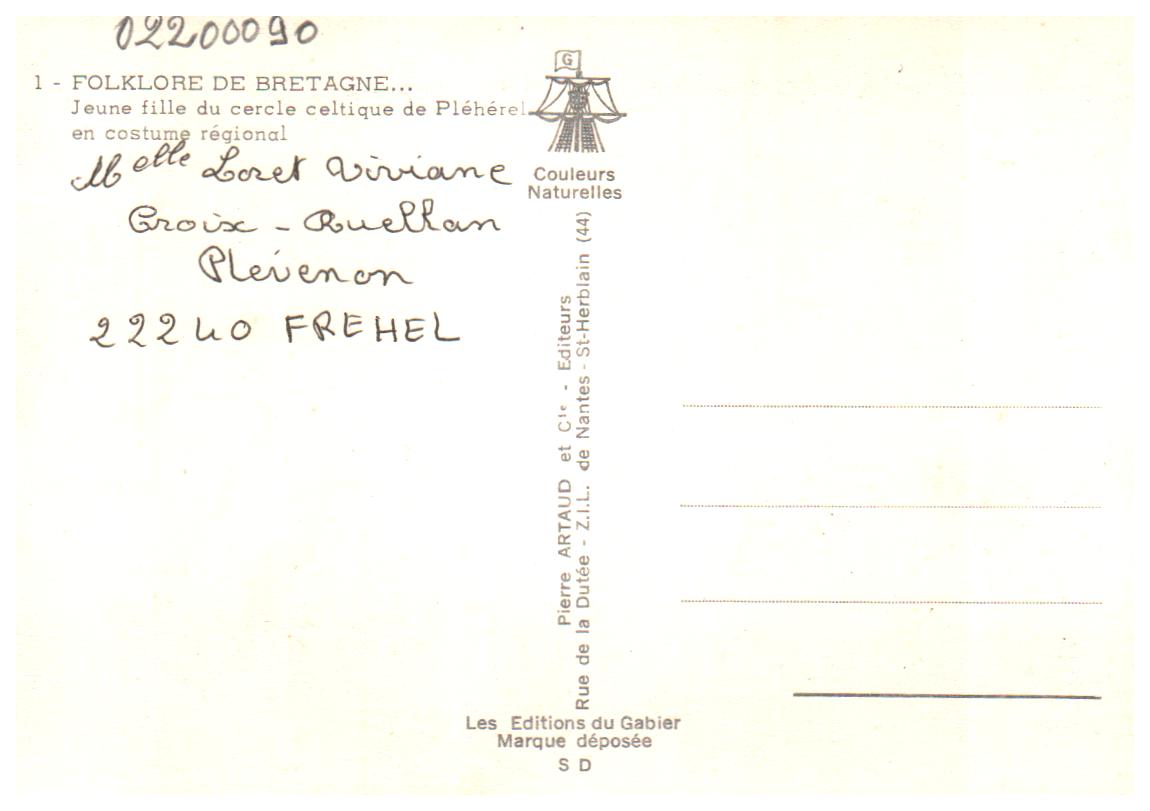 02200090
1 - FOLKLORE DE BRETAGNE...
Jeune fille du cercle celtique de Pléhérel
en costume régional
Melle Loret Viviane
Croix - Ruellan
Plévenon
22240 FREHEL
G
Couleurs
Naturelles
Pierre ARTAUD et Cie - Editeurs
Rue de la Dutée - Z.I.L. de Nantes - St-Herblain (44)
Les Editions du Gabier
Marque déposée
S D